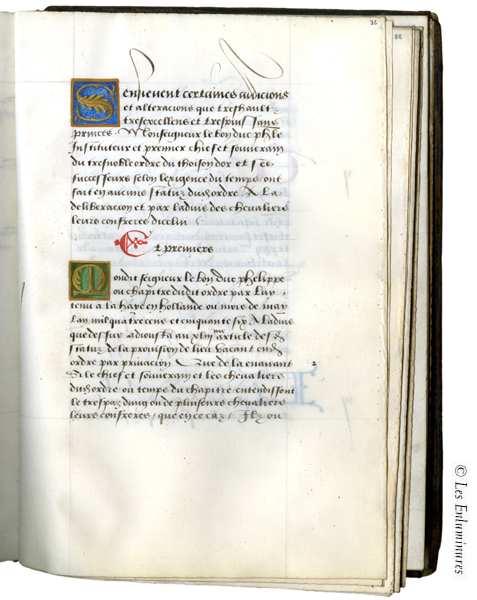 36
38
Sensievent certaines addicions
et alteracions que treshault
tresexcellens et trespuissans
princes. Monseigneur le bon duc phle
Instituteur et premier chief et souverain
du tresnoble ordre du thoison dor et ses
successeurs selon lexigence du temps ont
fait en aucuns statuz dudit ordre A la
deliberacion et par ladvis des chevaliers
leurs confreres dicellui
Et premiers
Mondit seigneur le bon duc phelippe
ou chapitre dudit ordre par luy
tenu a la haye en hollande ou mois de may
Lan mil quatre cens et cinquante six A ladvis
que dessus adiousta au article des
statuz de la provision du lieu vacant oudit
ordre par privacion Que de la en avant
Se le chief et souverain et les chevaliers
dudit ordre ou temps du chapitre entendissent
le trespaz dung ou de pluseurs chevaliers
leurs confreres, que en ce caz, Ilz ou
© Les Enluminures